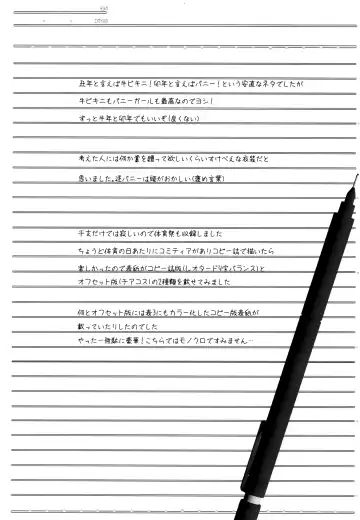 丑年と言えば牛ビキニ!卯年と言えばバニー!という安直なネタでしたが
牛ビキニもバニーガールも最高なのでヨシ!
ずっと牛年と卯年でもいいぞ(良くない)
考えた人には何か賞を贈って欲しいくらいすけべえな衣装だと
思いました。逆バニーは頭がおかしい(褒め言葉)
干支だけでは寂しいので体育祭も収録しました
ちょうど体育の日あたりにコミティアがありコピー誌で描いたら
楽しかったので表紙がコピー誌版(レオタードV字バランス)と
オフセット版(チアコス)の2種類を載せてみました
何とオフセット版には表3にもカラー化したコピー版表紙が
載っていたりしたのでした
やった一無駄に豪華!こちらではモノクロですみません…